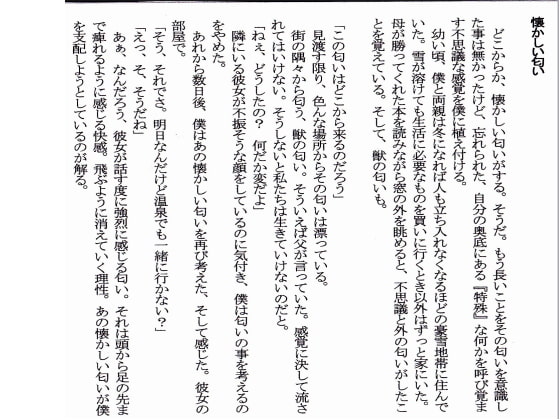 懐かしい匂い
　どこからか、懐かしい匂いがする。そうだ。もう長いことをその匂いを意識し
た事は無かったけど、忘れられた、自分の奥底にある『特殊』な何かを呼び覚ま
す不思議な感覚を僕に植え付ける。
　幼い頃、僕と両親は冬になれば人も立ち入れなくなるほどの豪雪地帯に住んで
いた。雪が溶けても生活に必要なものを買いに行くとき以外はずっと家にいた。
母が勝ってくれた本を読みながら窓の外を眺めると、不思議と外の匂いがしたこ
とを覚えている。そして、獣の匂いも。
「この匂いはどこから来るのだろう」
　見渡す限り、色んな場所からその匂いは漂っている。
　街の隅々から匂う、獣の匂い。そういえば父が言っていた。感覚に決して流さ
れてはいけない。そうしないと私たちは生きていけないのだと。
「ねぇ、どうしたの？　何だか変だよ」
　隣にいる彼女が不振そうな顔をしているのに気付き、僕は匂いの事を考えるの
をやめた。
　あれから数日後、僕はあの懐かしい匂いを再び考えた、そして感じた。彼女の
部屋で。
「そう、それでさ。明日なんだけど温泉でも一緒に行かない？」
「えっ、そ、そうだね」
　あぁ、なんだろう、彼女が話す度に強烈に感じる匂い。それは頭から足の先ま
で痺れるように感じる快感。飛ぶように消えていく理性。あの懐かしい匂いが僕
を支配しようとしているのが解る。